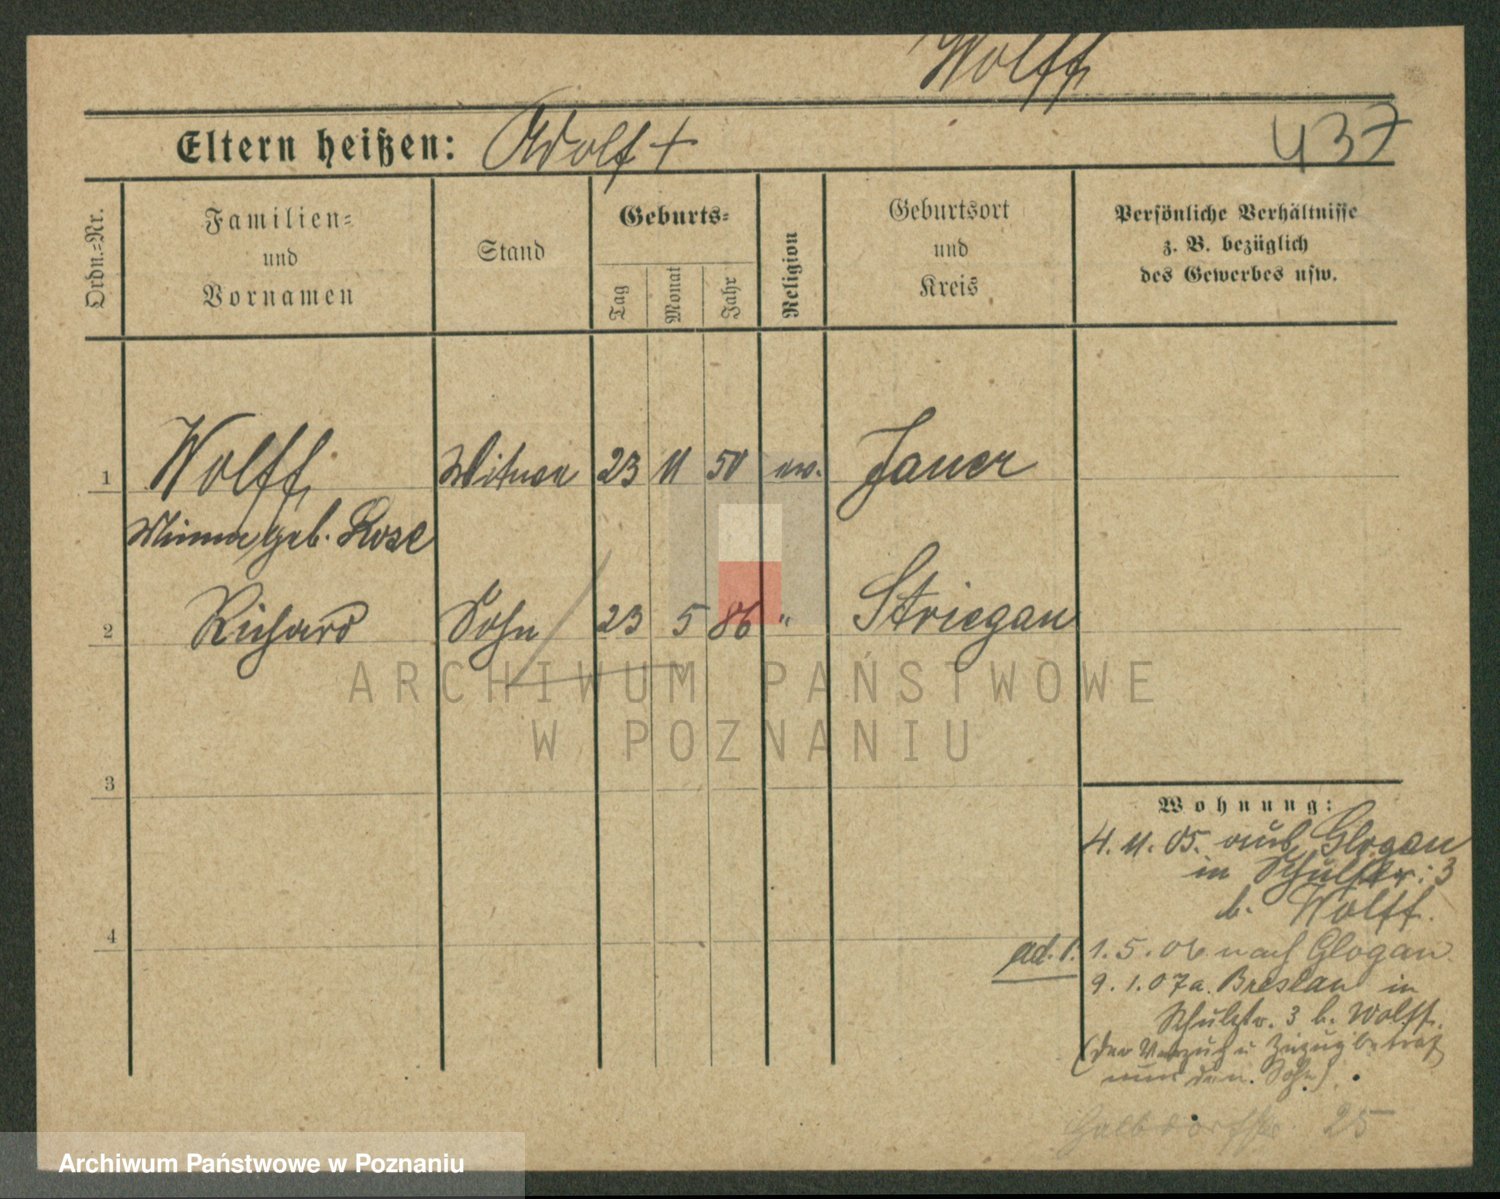 Wolff
Eltern heißen: Adolf +
437
Ordn.-Nr.
Familien-
und
Vornamen
Stand
Geburts-
Tag
Monat
Jahr
Religion
Geburtsort
und
Kreis
Persönliche Verhältnisse
z. B. bezüglich
des Gewerbes usw.
1 Wolff Witwe 23 11 50 ev. Jauer
Minna geb. Rose
2 Richard Sohn 23 5 86 " Striegau
3
Wohnung:
4. 11. 05. aus Glogau
in Schulstr. 3
b. Wolff.
4
ad. 1. 1. 5. 06 nach Glogau
9. 1. 07 a. Breslau in
Schulstr. 3 b. Wolff.
(Der Verzug u Zuzug betraf
nur den Sohn).
25
ARCHIWUM PAŃSTWOWE
W POZNANIU
Archiwum Państwowe w Poznaniu